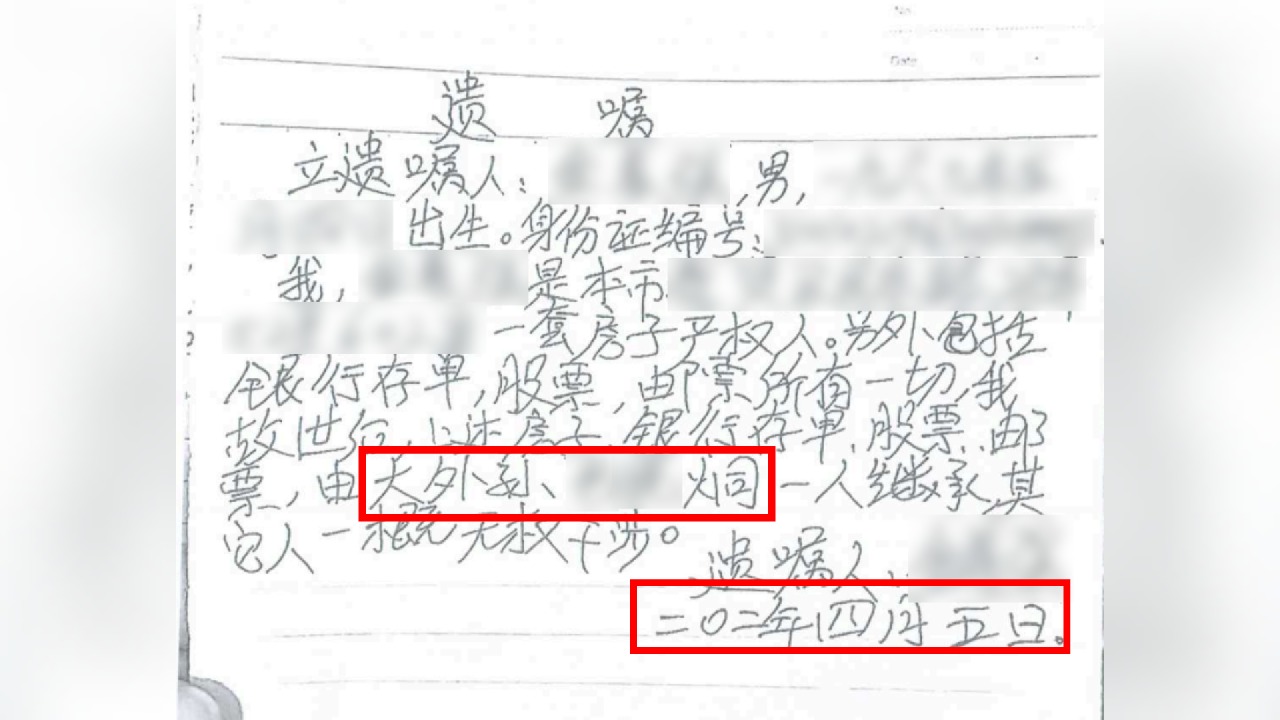 Date
遗 嘱
立遗嘱人: ,男,
出生。身份证编号:
我, 是本市
一套房子产权人。另外包括
银行存单,股票,邮票所有一切,我
故世后,上述房子,银行存单,股票,邮
票,由大外孙、 炯一人继承,其
它人一概无权干涉。
遗嘱人:
二〇二一年四月五日。